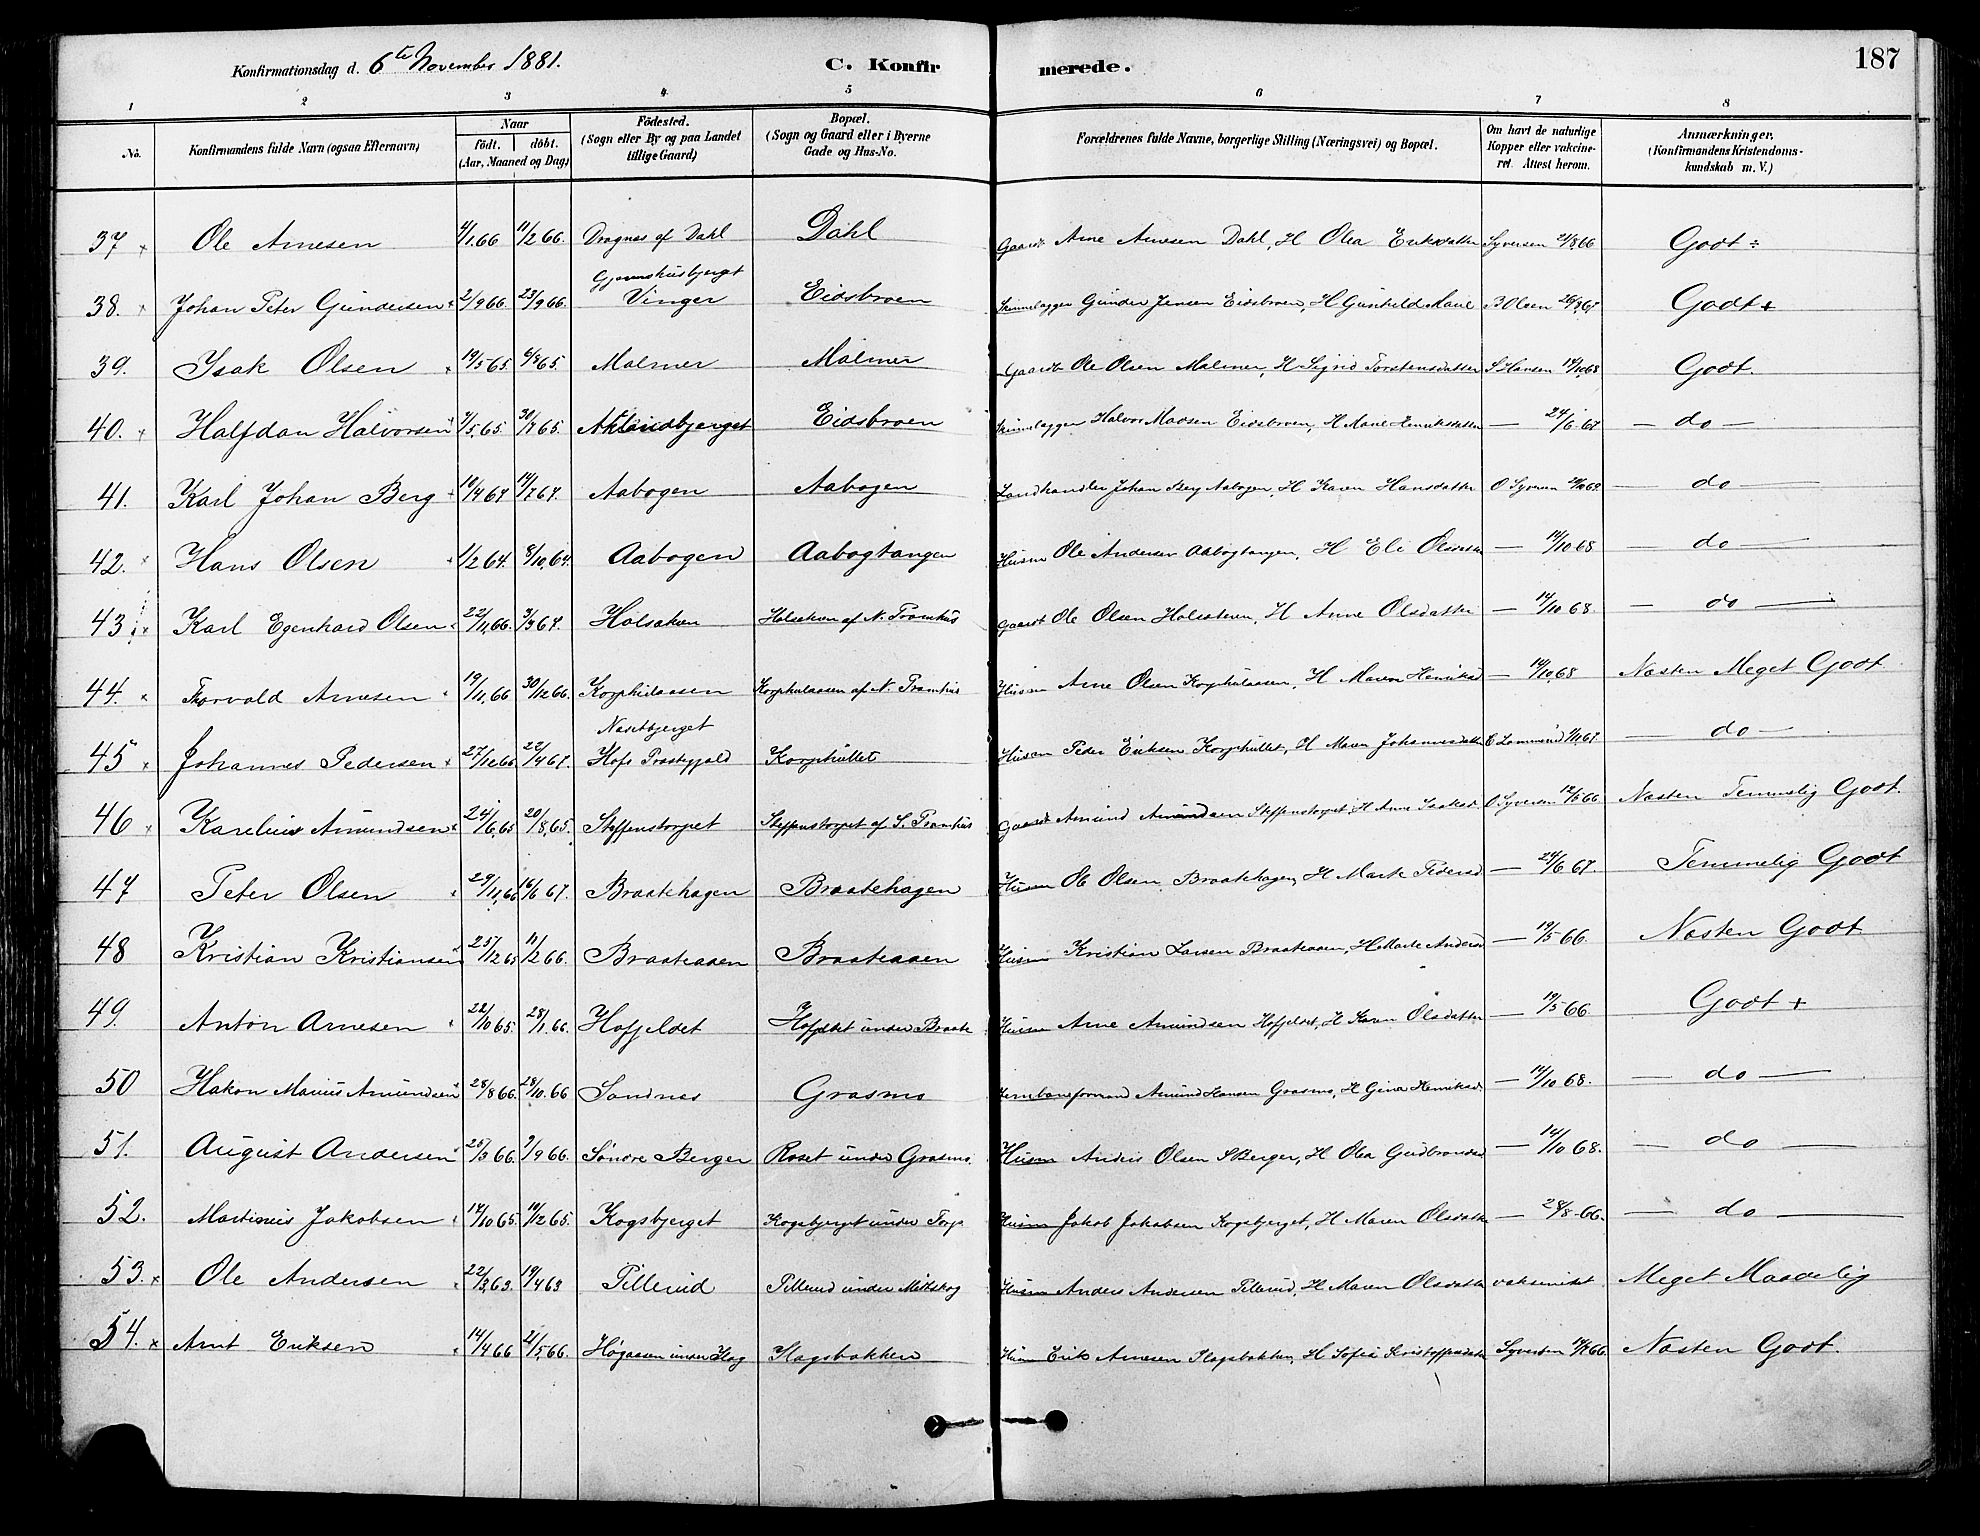 Konfirmationsdag d. 6te November 1881. C. Konfirmerede. 187
1 2 3 4 5 6 7 8
No. Konfirmandens fulde Navn (ogsaa Efternavn) Naar födt. döbt. (Aar, Maaned og Dag) Födested. (Sogn eller By og paa Landet tillige Gaard) Bopæl. (Sogn og Gaard eller i Byerne Gade og Hus-No. Forældrenes fulde Navne, borgerlige Stilling (Næringsvei) og Bopæl. Om havt de naturlige Kopper eller vakcineret. Attest herom. Anmærkninger. (Konfirmandens Kristendomskundskab m. V.)
37 Ole Arnesen 11/2 66. Dragnæs af Dahl Dahl Gaardb Arne Arnesen Dahl, H Olea Eriksdatter Syversen 21/8 66 Godt ÷
38. Johan Peter Gundersen 2/9 66. 23/9 66. Gjermshusbjerget Vinger Eidsbroen Gunder Jensen Eidsbroen, H Gunhild Marie B Olsen Godt +
39. Isak Olsen 19/5 65. 6/8 65. Malmer Malmer Gaardb Ole Olsen Malmer, H Sigrid Torstensdatter S Hansen 14/10 68 Godt.
40. Halfdan Halvorsen 30/7 65. Eidsbroen Halvor Madsen Eidsbroen, H Marie Henriksdatter — 24/6 67 — do —
41. Karl Johan Berg Aabogen Aabogen Landhandler Johan Berg Aabogen, H Karen Hansdatter O Syversen — do —
42. Hans Olsen 1/2 64. 8/10 64. Aabogen Aabogtangen Husm Ole Andersen Aabogtangen, H Eli — 14/10 68 — do —
43. Karl Egenhard Olsen 22/11 66. Ole Olsen H Arne Olsdatter — 14/10 68. — do —
44. Thorvald Arnesen 19/11 66 30/12 66. Husm Arne Olsen H Maren Henriksd — 14/10 68 Næsten Meget Godt
45 Johannes Pedersen 27/12 66 22/4 67. Næsetbjerget Hofs Præstegjæld Korphullet Husm Peder Eriksen Korphullet, H Maren Johannesdatter — do —
46 Karelius Amundsen 24/6 65 20/8 65. Steffenstorpet Steffenstorpet af S. Tramhus Gaardb Amund Amundsen Steffenstorpet H Anne Isaksd O Syversen 12/5 66 Næsten Temmelig Godt.
47 Peter Olsen 29/11 66 16/6 67. Braatehagen Braatehagen Husm Ole Olsen Braatehagen, H Marte Pedersd — 24/6 67. Temmelig Godt
48 Kristian Kristiansen 25/12 65 11/2 66. Braateaasen Braateaasen Husm Kristian Larsen Braateaasen, H Marte Andersd — 19/5 66. Næsten Godt
49. Anton Arnesen 22/10 65. 28/1 66. Hofjeldet Hofjeldet under Braate Husm Arne Amundsen Hofjeldet, H Karen Olsdatter — 19/5 66. Godt +
50 Hakon Marius Amundsen 28/8 66. 28/10 66 Sandnes Grasmo Jernbaneformand Amund Hansen Grasmo, H Gina Henriksd — 14/10 68. — do —
51. August Andersen 25/3 66. Søndre Berger Roset under Grasmo. Husm Anders Olsen S Berger, H Olea Gudbrandsd — 14/10 68. — do —
52. Martinius Jakobsen 14/10 65. Kogsbjerget Kogsbjerget under Torp Husm Jakob Jakobsen Kogsbjerget, H Maren Olsdatter — 28/8 66. — do —
53. Ole Andersen 22/3 63. 19/4 63 Tillerud Tillerud under Midtskog Husm Anders Andersen Tillerud, H Maren Olsdatter vaksineret Meget Maadelig
54. Arnt Eriksen 14/4 66 21/5 66. Høgaasen under Slag Slagsbakken Husm Erik Arnesen Slagsbakken, H Sofia Kristoffersdatter Syversen Næsten Godt.